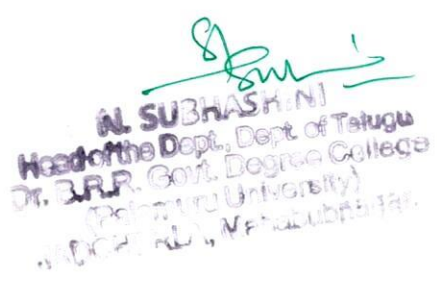 N. SUBHASHINI
Head of the Dept., Dept. of Telugu
Dr. B.R.R. Govt. Degree College
(Palamuru University)
JADCHERLA, Mahabubnagar.